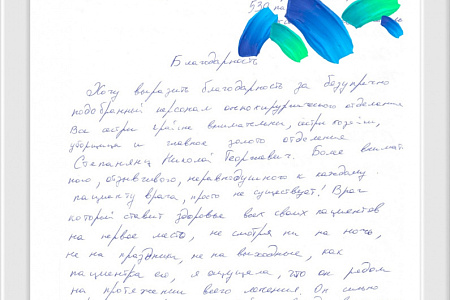 530 па
Благодарность
Хочу выразить благодарность за безупречно
подобранный персонал онкохирургического отделения
Все сестры крайне внимательны, сестра хозяйки,
уборщица и главное золото отделения
Степанянц Николай Георгиевич. Более внимат
ного, отзывчивого, неравнодушного к каждому
пациенту врача, просто не существует! Врач
который ставит здоровье всех своих пациентов
на первое место, не смотря ни на ночь,
не на праздники, не на выходные, как
пациентка его, я ощущала, что он рядом
на протяжении всего лечения. Он сильно